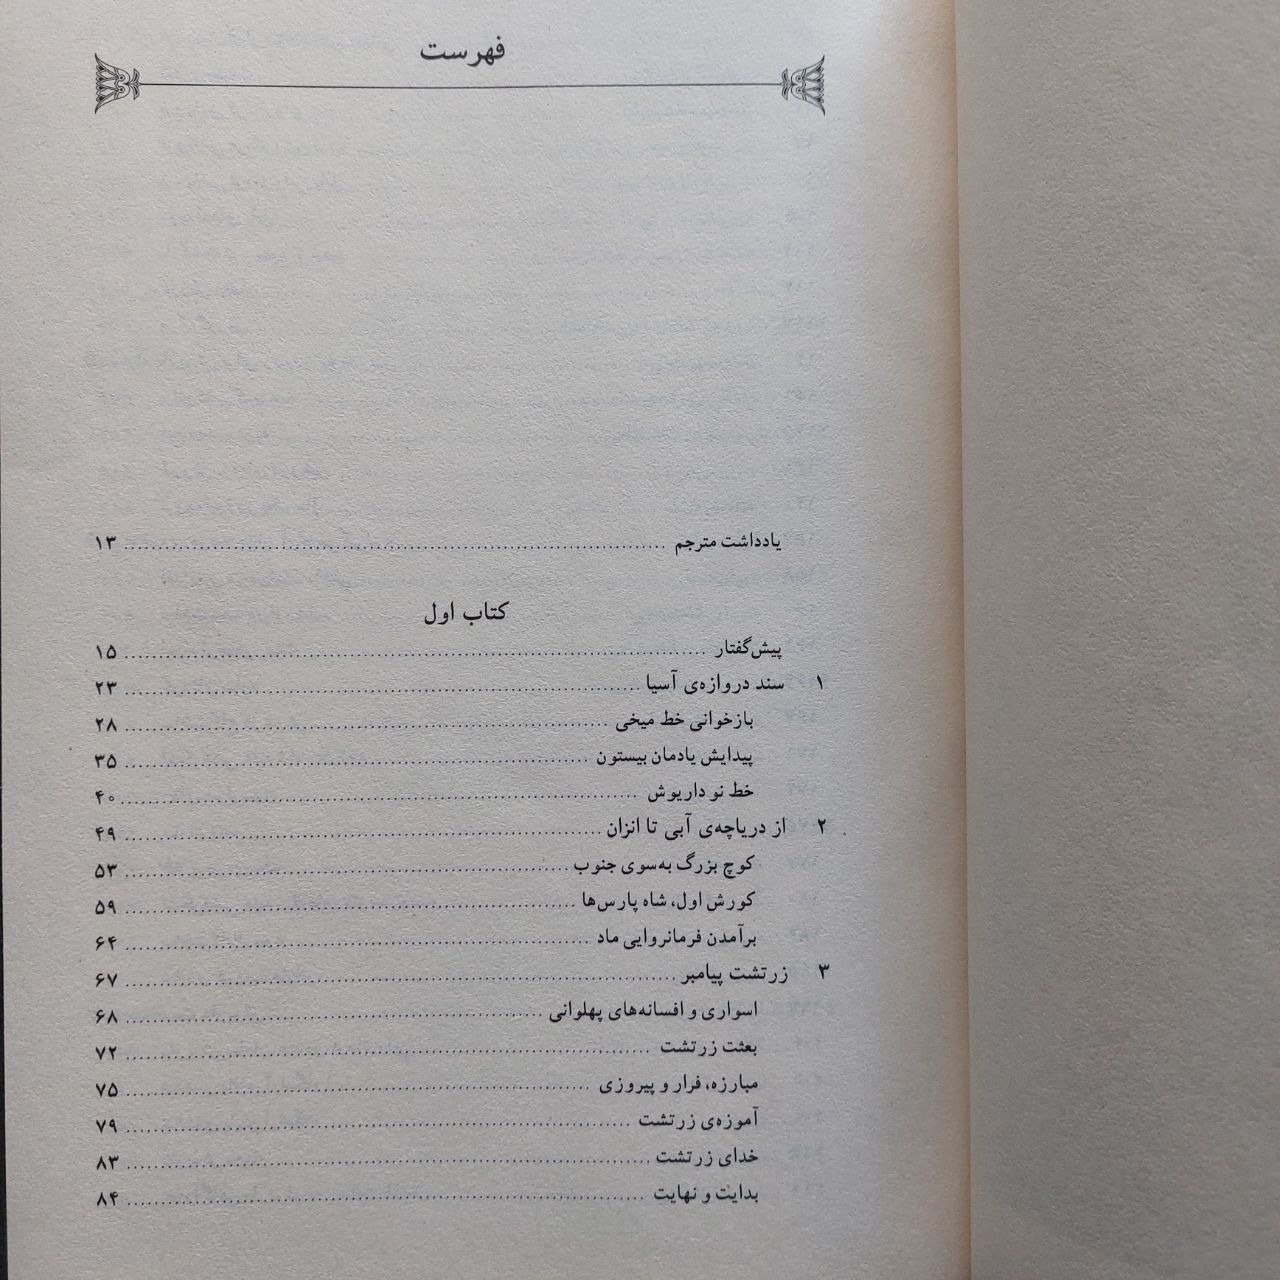 فهرست
یادداشت مترجم ........ ۱۳
کتاب اول
پیش‌گفتار ........ ۱۵
۱ سند دروازه‌ی آسیا ........ ۲۳
بازخوانی خط میخی ........ ۲۸
پیدایش یادمان بیستون ........ ۳۵
خط نو داریوش ........ ۴۰
۲ از دریاچه‌ی آبی تا انزان ........ ۴۹
کوچ بزرگ به‌سوی جنوب ........ ۵۳
کورش اول، شاه پارس‌ها ........ ۵۹
برآمدن فرمانروایی ماد ........ ۶۴
۳ زرتشت پیامبر ........ ۶۷
اسواری و افسانه‌های پهلوانی ........ ۶۸
بعثت زرتشت ........ ۷۲
مبارزه، فرار و پیروزی ........ ۷۵
آموزه‌ی زرتشت ........ ۷۹
خدای زرتشت ........ ۸۳
بدایت و نهایت ........ ۸۴